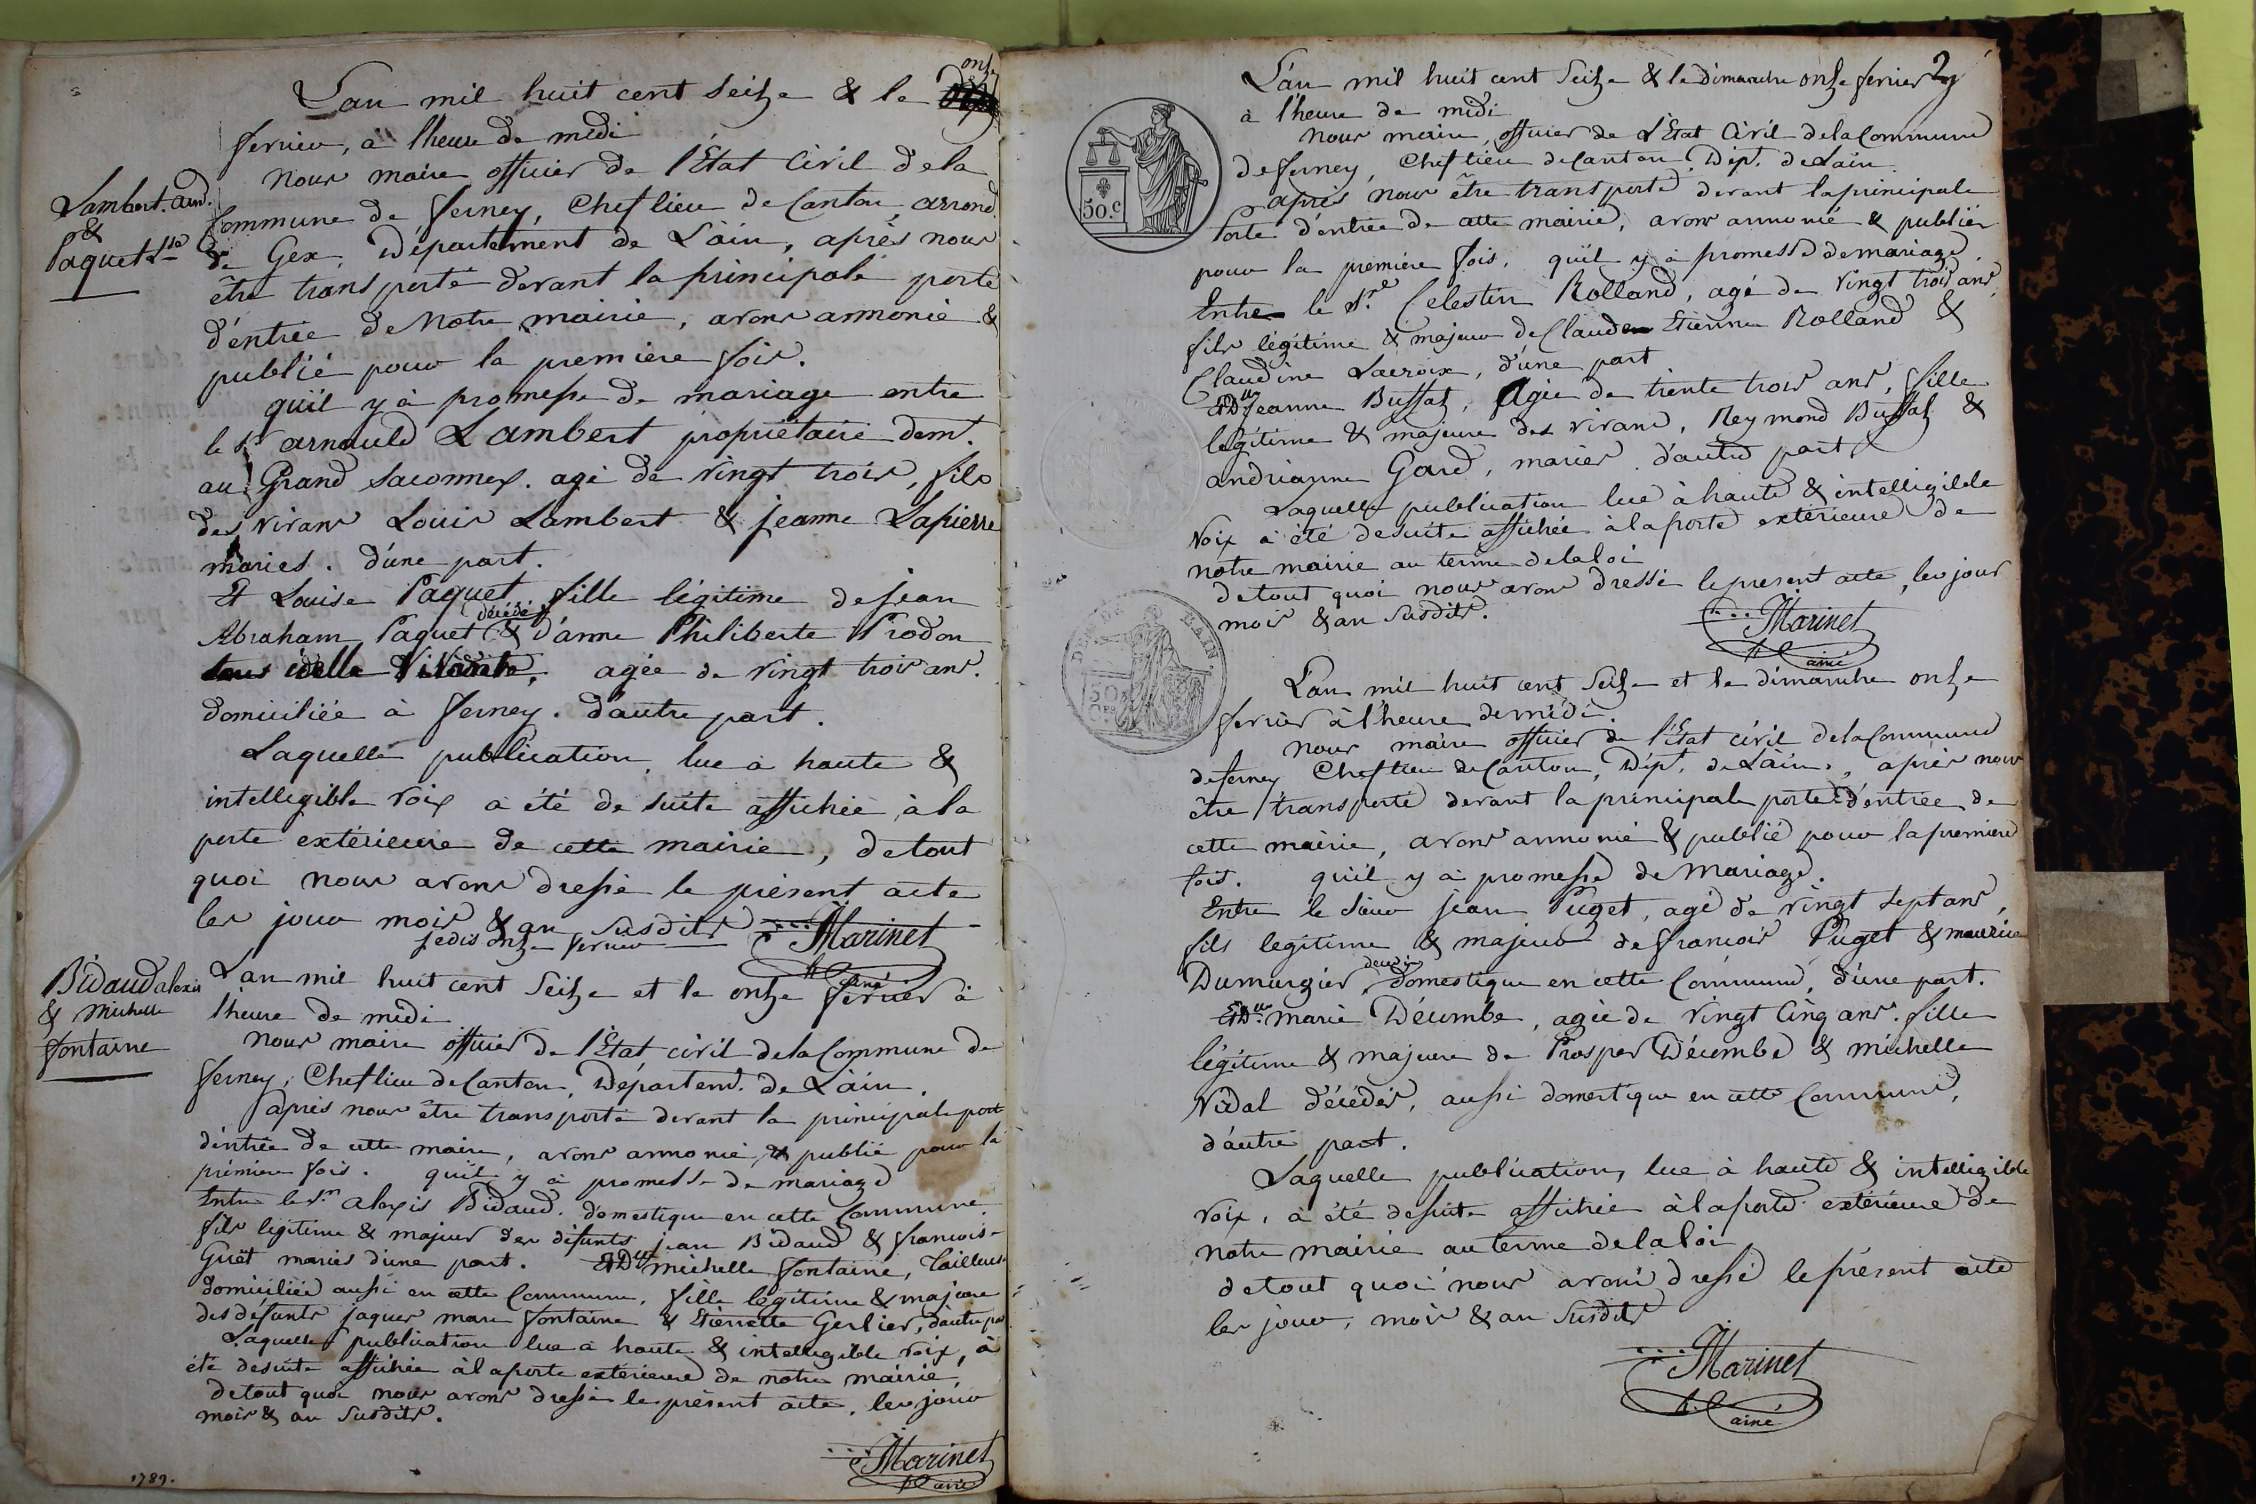 L'an mil huit cent seize & le onze
fevrier, à l'heure de midi
Nous maire officier de l'État Civil de la
Lambert. arnd.
&
Paquet Lse
Commune de ferney, Chef lieu de Canton, arrond.
de Gex, Département de L'ain, après nous
être transporté devant la principale porte
d'éntrée de Notre mairie, avons annoncé &
publié pour la premiere fois.
qu'il y à promesse de mariage entre
le Sr arnauld Lambert propriétaire demt.
au Grand Saconnex. agé de vingt trois, fils
des vivans Louis Lambert & jeanne Lapierre
mariés. d'une part.
Et Louise Paquet fille légitime de jean
Abraham Paquet décédé & d'anne Philiberte Prodon
agée de vingt trois ans.
domiciliée à ferney. d'autre part.
Laquelle publication, lue à haute &
intelligible voix a été de suite affichée à la
porte extérieure de cette mairie, de tout
quoi nous avons dressé le présent acte
les jour mois & an susdits
je dis onze fevrier
JMarinet
ainé
Bidaud alexis
& Michelle
fontaine
L'an mil huit cent seize et le onze fevrier à
l'heure de midi
Nous maire officier de l'État civil de la Commune de
ferney, Chef lieu de Canton, Départemt. de L'ain,
après nous être transporté devant la principale porte
d'éntrée de cette mairie, avons annoncé & publié pour la
prémiere fois. qu'il y à promesse de mariage
Entre le Sr. alexis Bidaud. domestique en cette Commune,
fils legitime & majeur des défunts jean Bidaud & francoise
Guët mariés d'une part. Et Dlle michelle fontaine, Tailleuse
domiciliée aussi en cette Commune, fille légitime & majeure
des défunts jaques marc fontaine & Etiennette Gerlier, d'autre part
Laquelle publication lue à haute & intelligible voix, à
été de suite affichée à la porte extérieure de notre mairie,
de tout quoi nous avons dressé le présent acte, les jour
mois & an susdits.
JMarinet
ainé
1789.
2
L'an mil huit cent seize & le dimanche onze fevrier
à l'heure de midi
Nous maire, officier de L'État Civil de la Commune
de ferney, Chef lieu de Canton, Dépt. de L'ain
après nous être transporté devant la principale
50.c
Porte d'éntrée de cette mairie, avons annoncé & publiér
pour la premiére fois, qu'il y à promesse de mariage,
Entre le Sr. Celestin Rolland, agé de vingt trois ans,
fils légitime & majeur de Claude Etienne Rolland &
Claudine Lacroix, d'une part
Et Dlle Jeanne Buffaz, Agée de trente trois ans, fille
legitime & majeure des vivans, Reymond Buffaz &
andrianne Gard, mariés d'autre part
Laquelle publication lue à haute & intelligible
Voix à été de suite affichée à la porte extérieure de
notre mairie au terme de la loi
de tout quoi nous avons dressé le présent acte, les jour
mois & an susdits.
JMarinet
ainé
AIN.
50
L'an mil huit cent seize et le dimanche onze
fevrier à l'heure de midi.
Nous maire officier de l'État civil de la Commune
de ferney Chef lieu de Canton, Dépt. de L'ain, après nous
être transporté devant la principale porte d'éntrée de
cette mairie, avons annoncé & publié pour la premiere
fois. qu'il y à promesse de Mariage.
Entre le Sieur jean Puget, agé de vingt sept ans,
fils legitime & majeur de francois Puget & maurice
Dumurgier décédés, domestique en cette Commune, d'une part.
Et Dlle marie Décombe, agée de vingt Cinq ans. fille
légitime & majeure de Prosper Décombe & michelle
Vidal décédés, aussi domestique en cette Commune,
d'autre part.
Laquelle publication, lue à haute & intelligible
voix, à été de suite affichée à la porte extérieure de
notre mairie au terme de la loi
de tout quoi nous avons dressé le présent acte
les jour, mois & an susdits
JMarinet
ainé